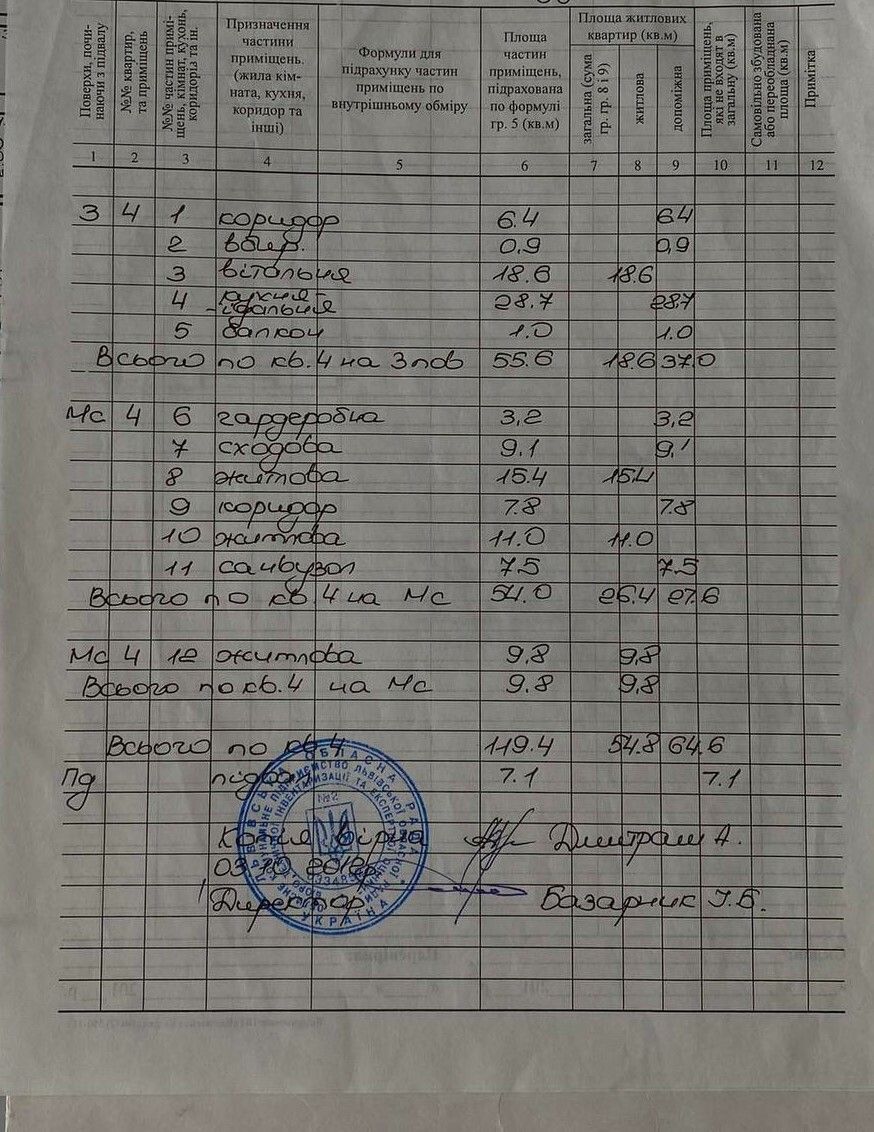 Поверхи, починаючи з підвалу
№№ квартир, та приміщень
№№ частин приміщень, кімнат, кухонь, коридоріз та ін.
Призначення частини приміщень. (жила кімната, кухня, коридор та інші)
Формули для підрахунку частин приміщень по внутрішньому обміру
Площа частин приміщень, підрахована по формулі гр. 5 (кв.м)
Площа житлових квартир (кв.м)
загальна (сума гр. гр. 8 і 9)
житлова
допоміжна
Площа приміщень, які не входят в загальну (кв.м)
Самовільно збудована або переобладнана площа (кв.м)
Примітка
1 2 3 4 5 6 7 8 9 10 11 12
3 4 1 коридор 6.4 6.4
2 вбир. 0,9 0,9
3 вітальня 18.6 18.6
4 кухня-
-їдальня 28.7 28.7
5 балкон 1.0 1.0
Всього по кв. 4 на 3 пов 55.6 18.6 37.0
Мс 4 6 гардеробна 3,2 3,2
7 сходова 9.1 9.1
8 житлова 15.4 15.4
9 коридор 7.8 7.8
10 житлова 11.0 11.0
11 санвузол 7.5 7.5
Всього по кв. 4 на Мс 54.0 26.4 27.6
Мс 4 12 житлова 9,8 9,8
Всього по кв. 4 на Мс 9.8 9,8
Всього по кв. 4 119.4 54.8 64.6
Пд підвал 7.1 7.1
Копія вірна Дмитраш А.
03.10.2012р.
Директор Базарник І.Б.
ЛЬВІВСЬКА ОБЛАСНА РАДА
УКРАЇНА
№2